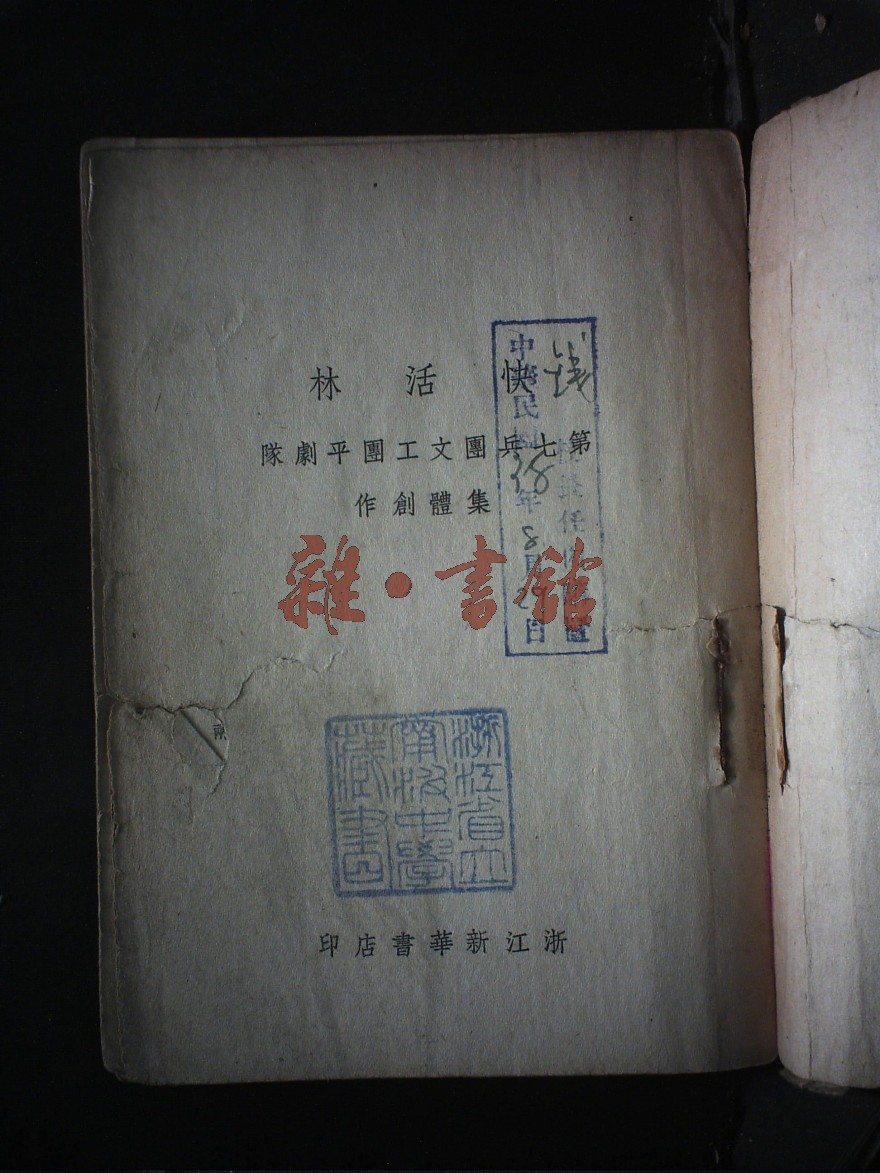 快活林
第七兵團文工團平劇隊
集體創作
中華民國38年8月日
雜·書館
浙江省立
中學
藏書
浙江新華書店印